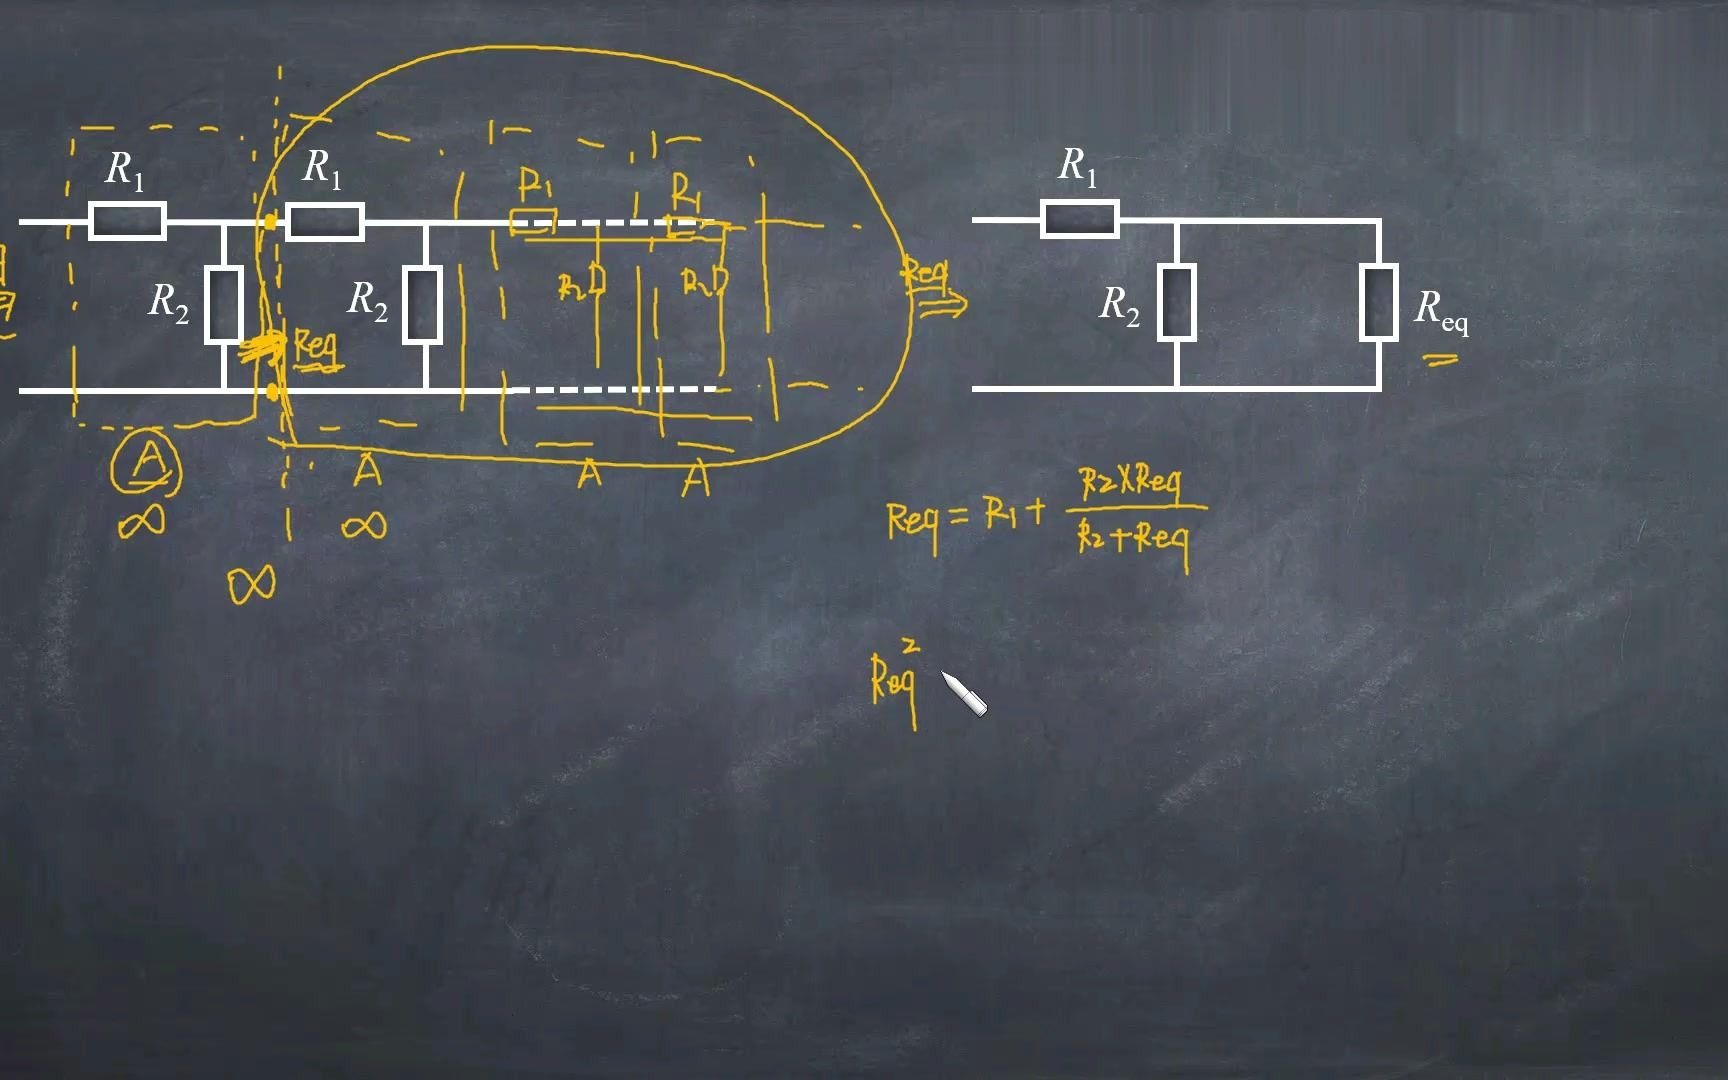 R1 R1 R1 R1
R2 R2 R2 R2
Req
A A A A
∞ ∞
∞
Req
R1
R2 Req
Req = R1 + R2×Req / R2+Req
Req²